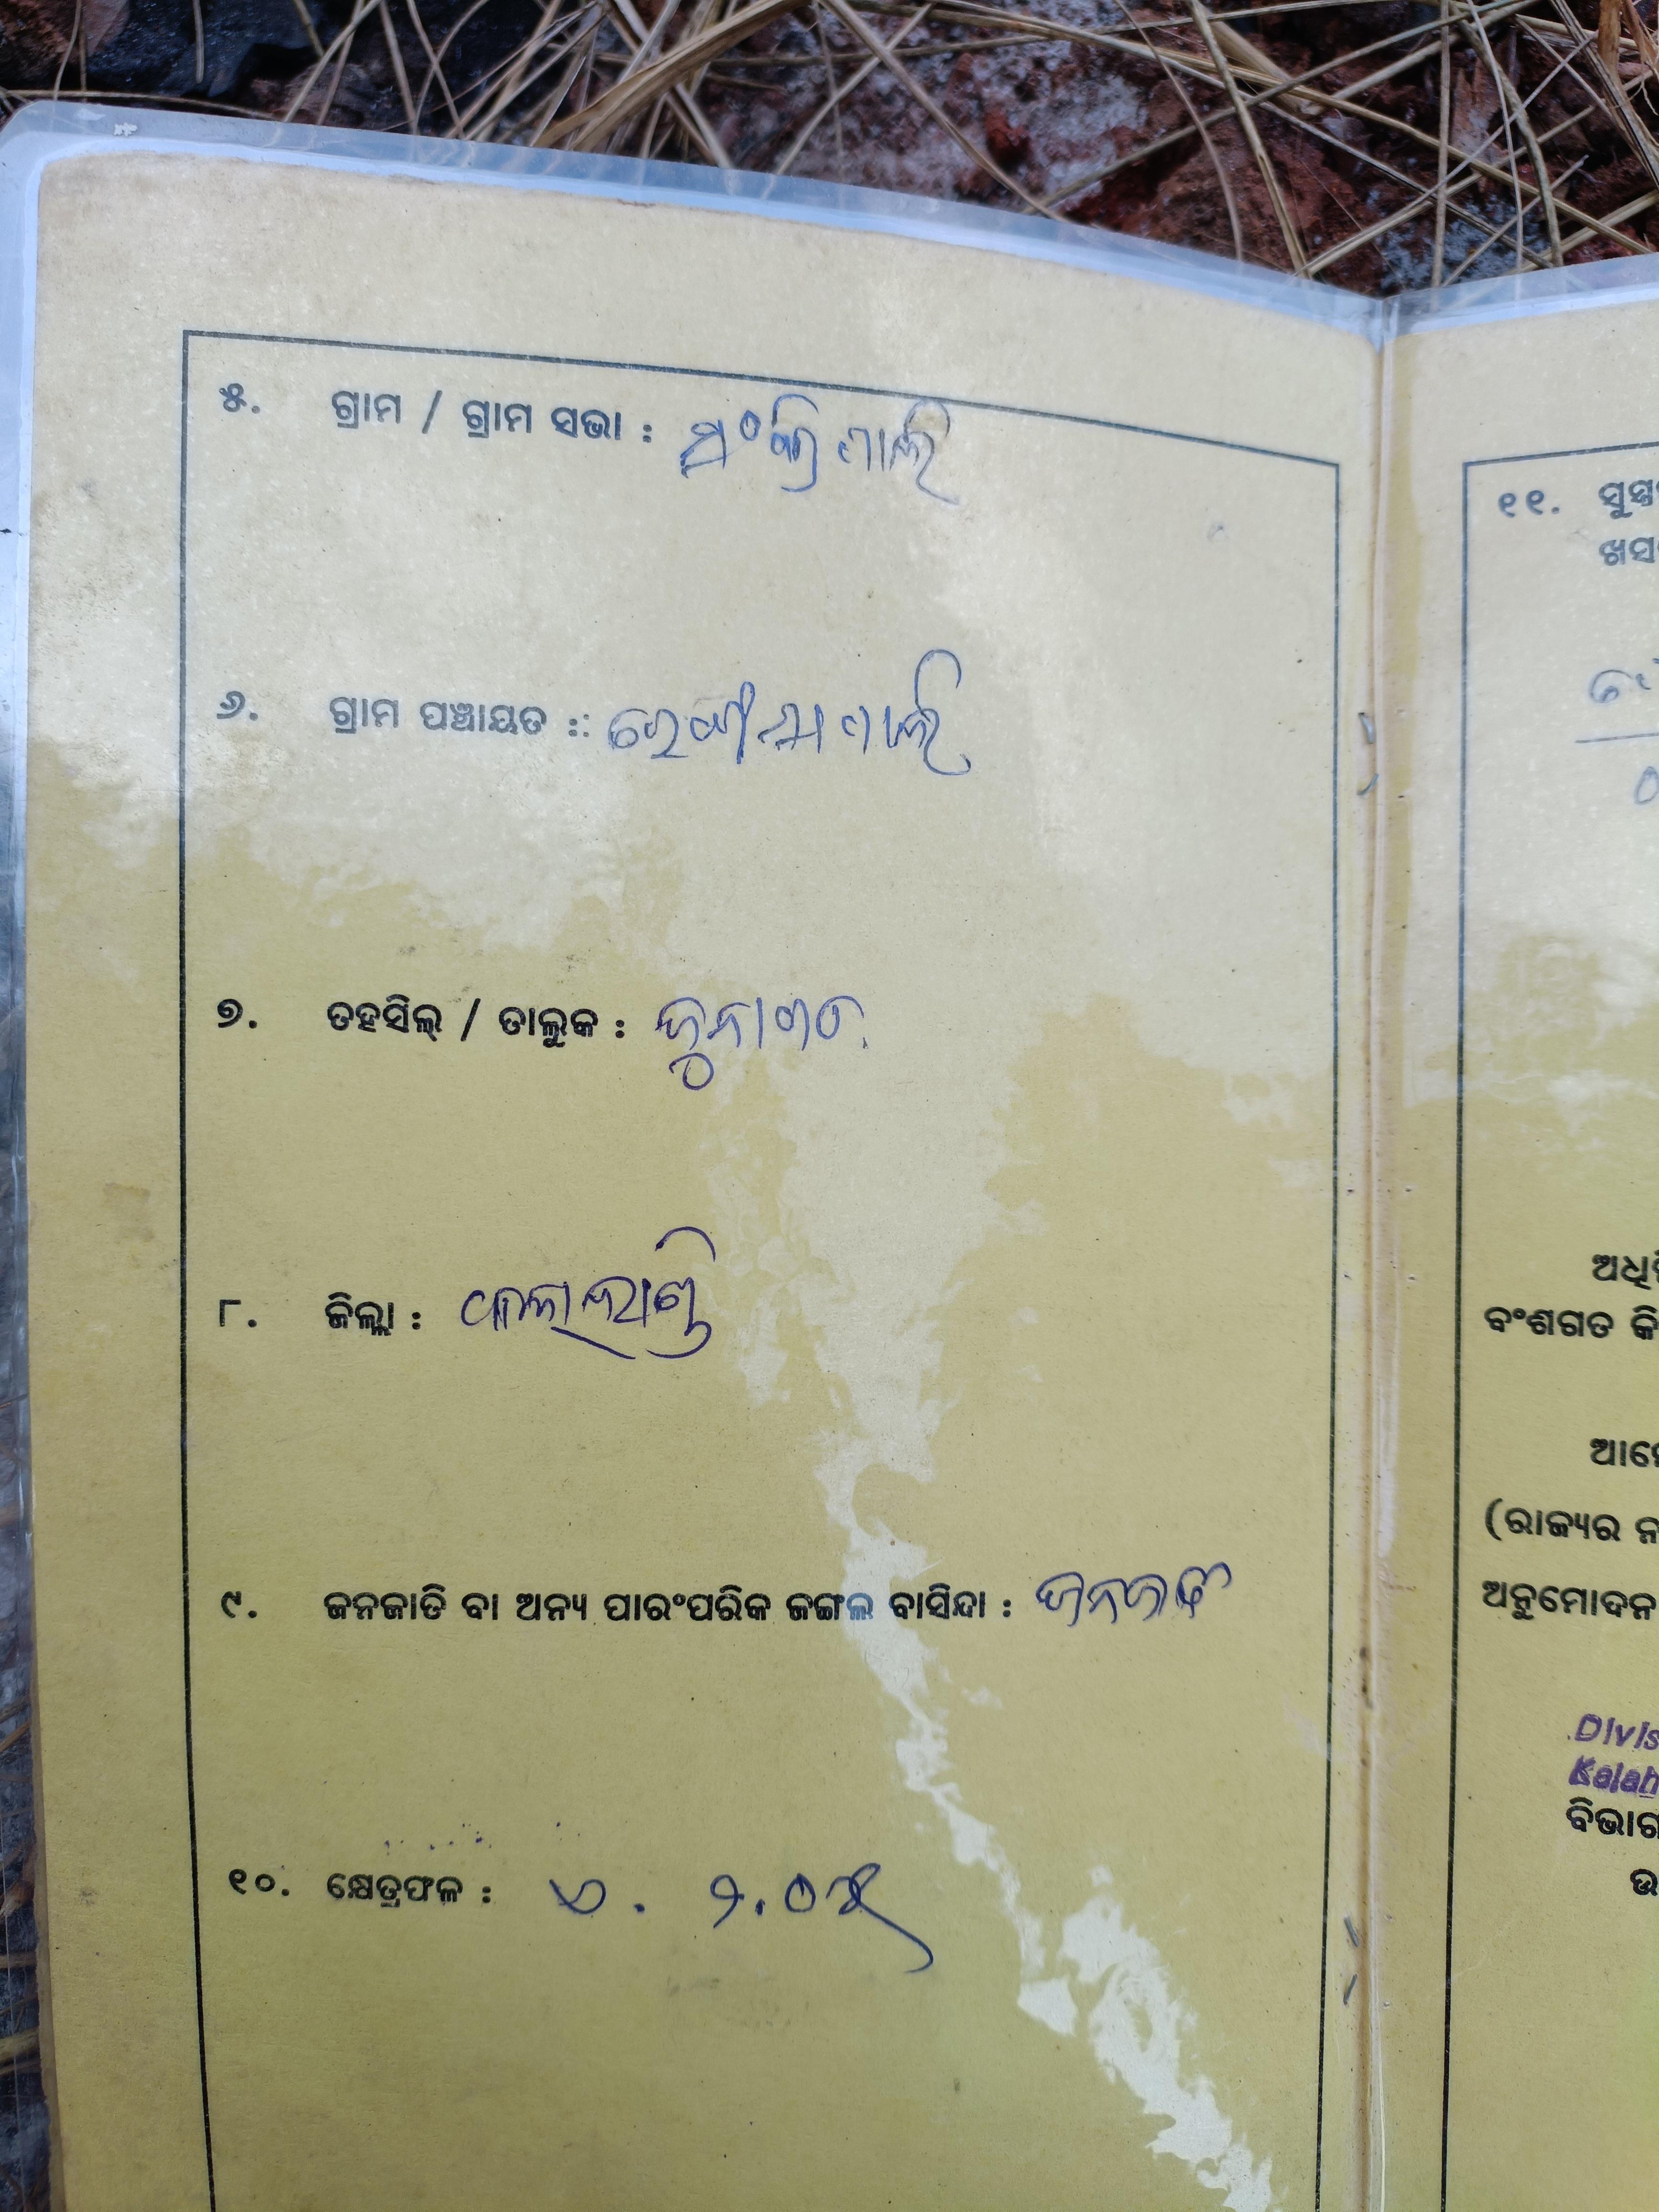 ୫. ଗ୍ରାମ / ଗ୍ରାମ ସଭା :
୬. ଗ୍ରାମ ପଞ୍ଚାୟତ ::
୭. ତହସିଲ୍ / ତାଲୁକ : ଜୁନାଗଡ
୮. ଜିଲ୍ଲା : କଳାହାଣ୍ଡି
୯. ଜନଜାତି ବା ଅନ୍ୟ ପାରଂପରିକ ଜଙ୍ଗଲ ବାସିନ୍ଦା : ଜନଜାତି
୧୦. କ୍ଷେତ୍ରଫଳ : ଏ. ୨.୦୫
୧୧. ସୁସ୍ତ
ଖସ
ଅଧି
ବଂଶଗତ କି
ଆମେ
(ରାଜ୍ୟର ନ
ଅନୁମୋଦନ
Divis
Kalah
ବିଭାଗ
ଉ